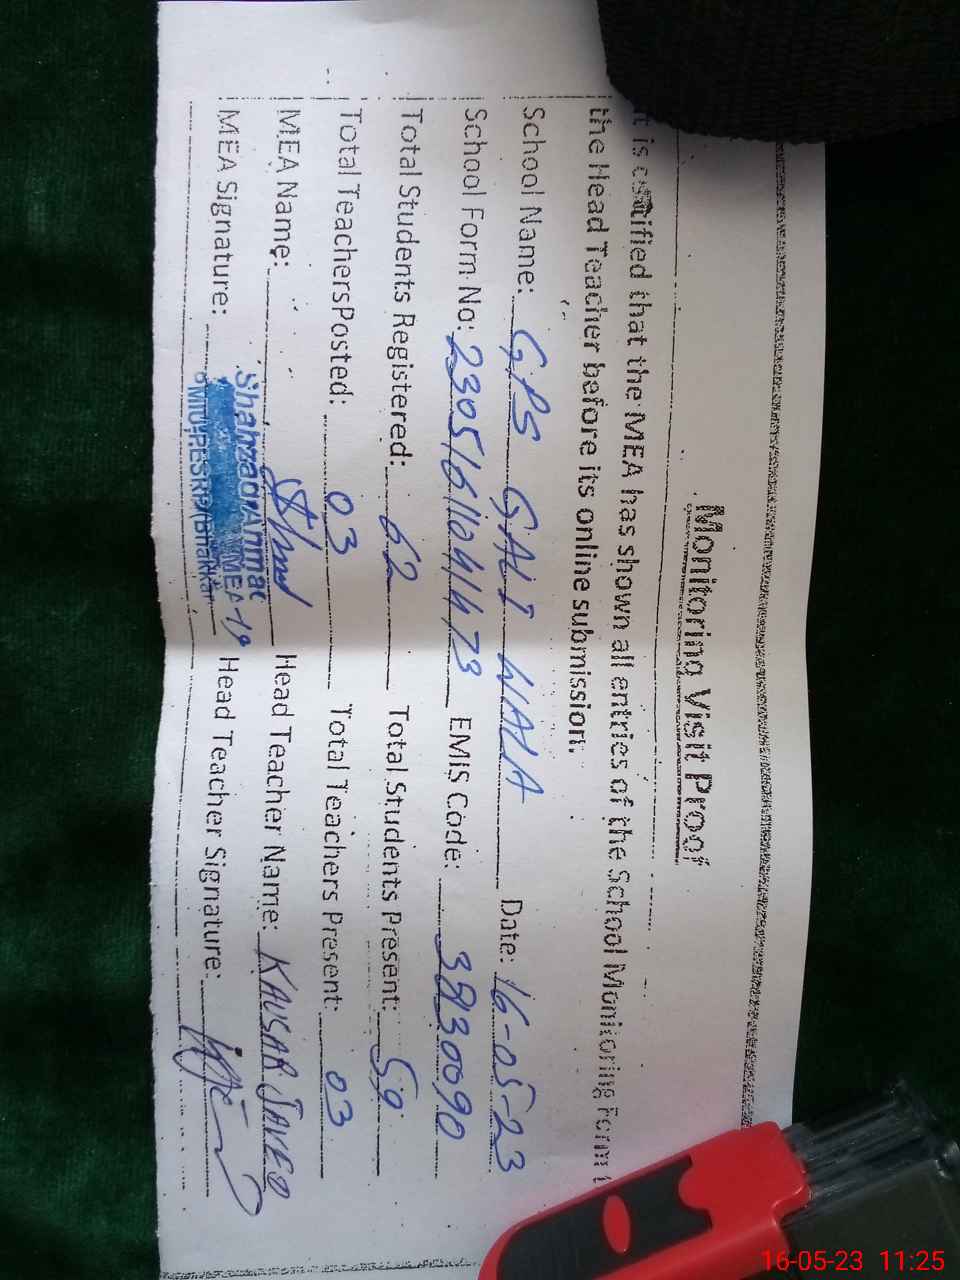 Monitoring Visit Proof
It is certified that the MEA has shown all entries of the School Monitoring Form t
the Head Teacher before its online submission.
School Name: GPS GALI WALA Date: 16-05-23
School Form No: EMIS Code: 38130090
Total Students Registered: 62 Total Students Present: 59
Total TeachersPosted: 03 Total Teachers Present: 03
MEA Name: Head Teacher Name: KAUSAR JAVED
MEA Signature: Head Teacher Signature:
Shahzad Ahmad
MEA-19
PMIU-PESRP/Bhakkar
16-05-23 11:25